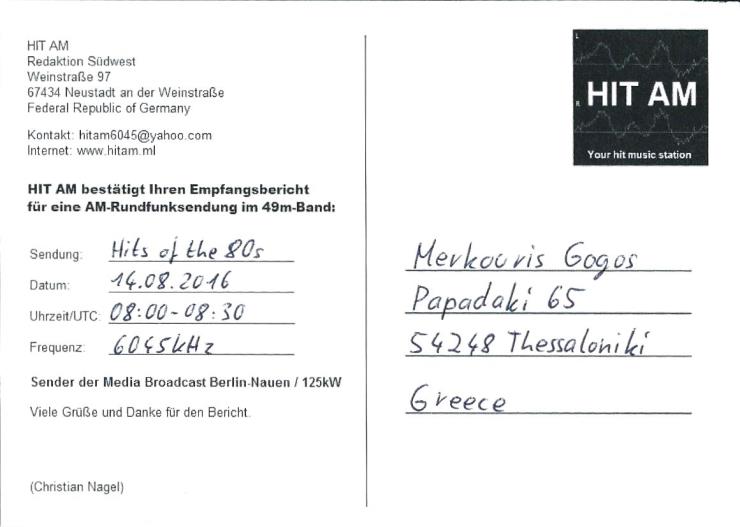 HIT AM
Redaktion Südwest
Weinstraße 97
67434 Neustadt an der Weinstraße
Federal Republic of Germany
Kontakt: hitam6045@yahoo.com
Internet: www.hitam.ml
HIT AM bestätigt Ihren Empfangsbericht
für eine AM-Rundfunksendung im 49m-Band:
Sendung: Hits of the 80s
Datum: 14.08.2016
Uhrzeit/UTC: 08:00-08:30
Frequenz: 6045kHz
Sender der Media Broadcast Berlin-Nauen / 125kW
Viele Grüße und Danke für den Bericht.
(Christian Nagel)
L
R
HIT AM
Your hit music station
Merkouris Gogos
Papadaki 65
54248 Thessaloniki
Greece